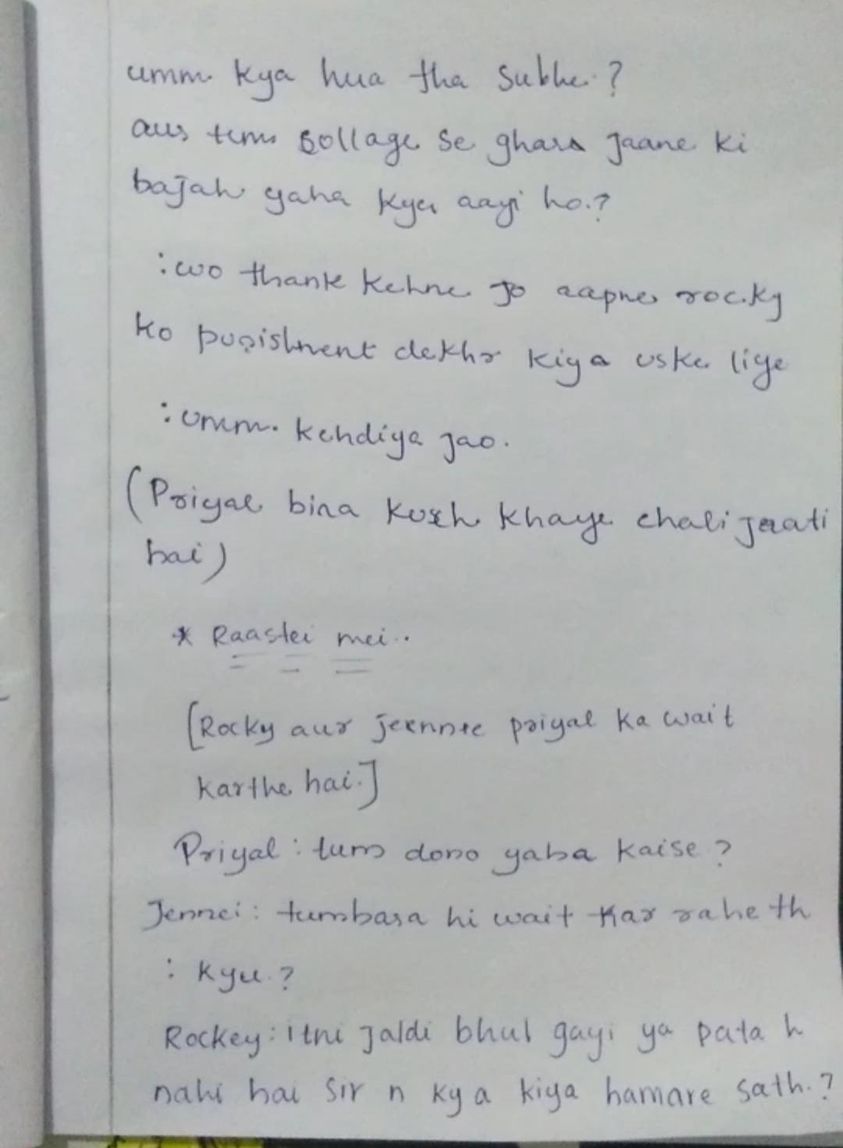 umm kya hua tha subhe.?
aur tum collage se ghars jaane ki
bajah yaha kyu aayi ho.?
:wo thank kehne jo aapne rocky
ko punishment dekhr kiya uske liye
:umm. kehdiya jao.
(Priyal bina kuch khaye chali jaati
hai)
* Raastei mei..
[Rocky aur jeennie priyal ka wait
karthe hai.]
Priyal : tum dono yaha kaise ?
Jennei : tumhara hi wait kar rahe th
: kyu.?
Rockey : itni jaldi bhul gayi ya pata h
nahi hai sir n kya kiya hamare sath.?